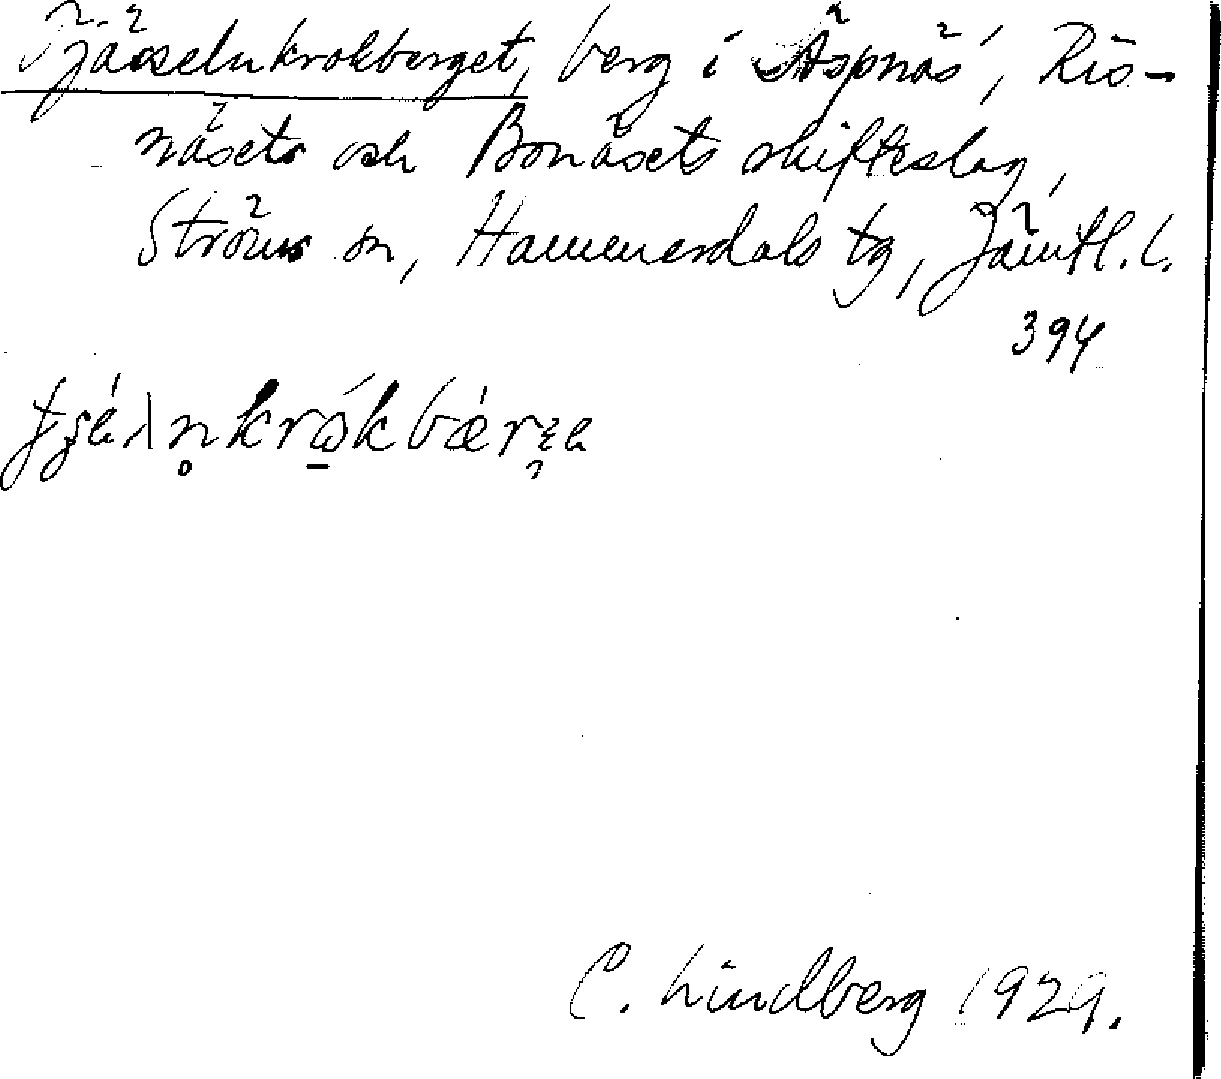 Fjäaselnkrokberget, berg i Äspnäs, Ris-
näsets och Bonäsets skifteslag,
Ströms sn, Hammerdals tg, Jämtl. l.
394
C. Lindberg 1929.